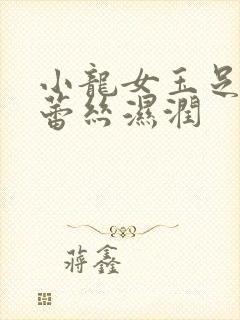 小龍女玉足
蕾丝濕潤
蔣鑫